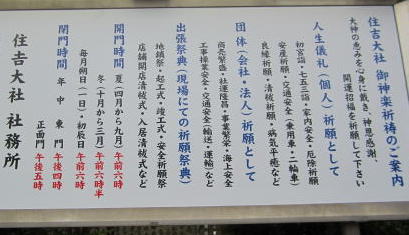 住吉大社 御神楽祈祷のご案内
大神の恵みを心身に戴き、神恩感謝、
開運招福を祈願して下さい
人生儀礼(個人)祈願として
初宮詣・七五三詣・家内安全・厄除祈願
安産祈願・交通安全(乗用車・二輪車)
良縁祈願・清祓祈願・病気平癒など
団体(会社・法人)祈願として
商売繁盛・社運隆昌・事業繁栄・海上安全
工事操業安全・交通安全(輸送・運輸)など
出張祭典(現場にての祈願祭典)
地鎮祭・起工式・竣工式・安全祈願祭
店舗開店清祓式・入居清祓式など
開門時間 夏(四月から九月)午前六時
冬(十月から三月)午前六時半
毎月朔日(一日)・初辰日 午前六時
閉門時間 年中 東門 午後四時
正面門 午後五時
住吉大社 社務所